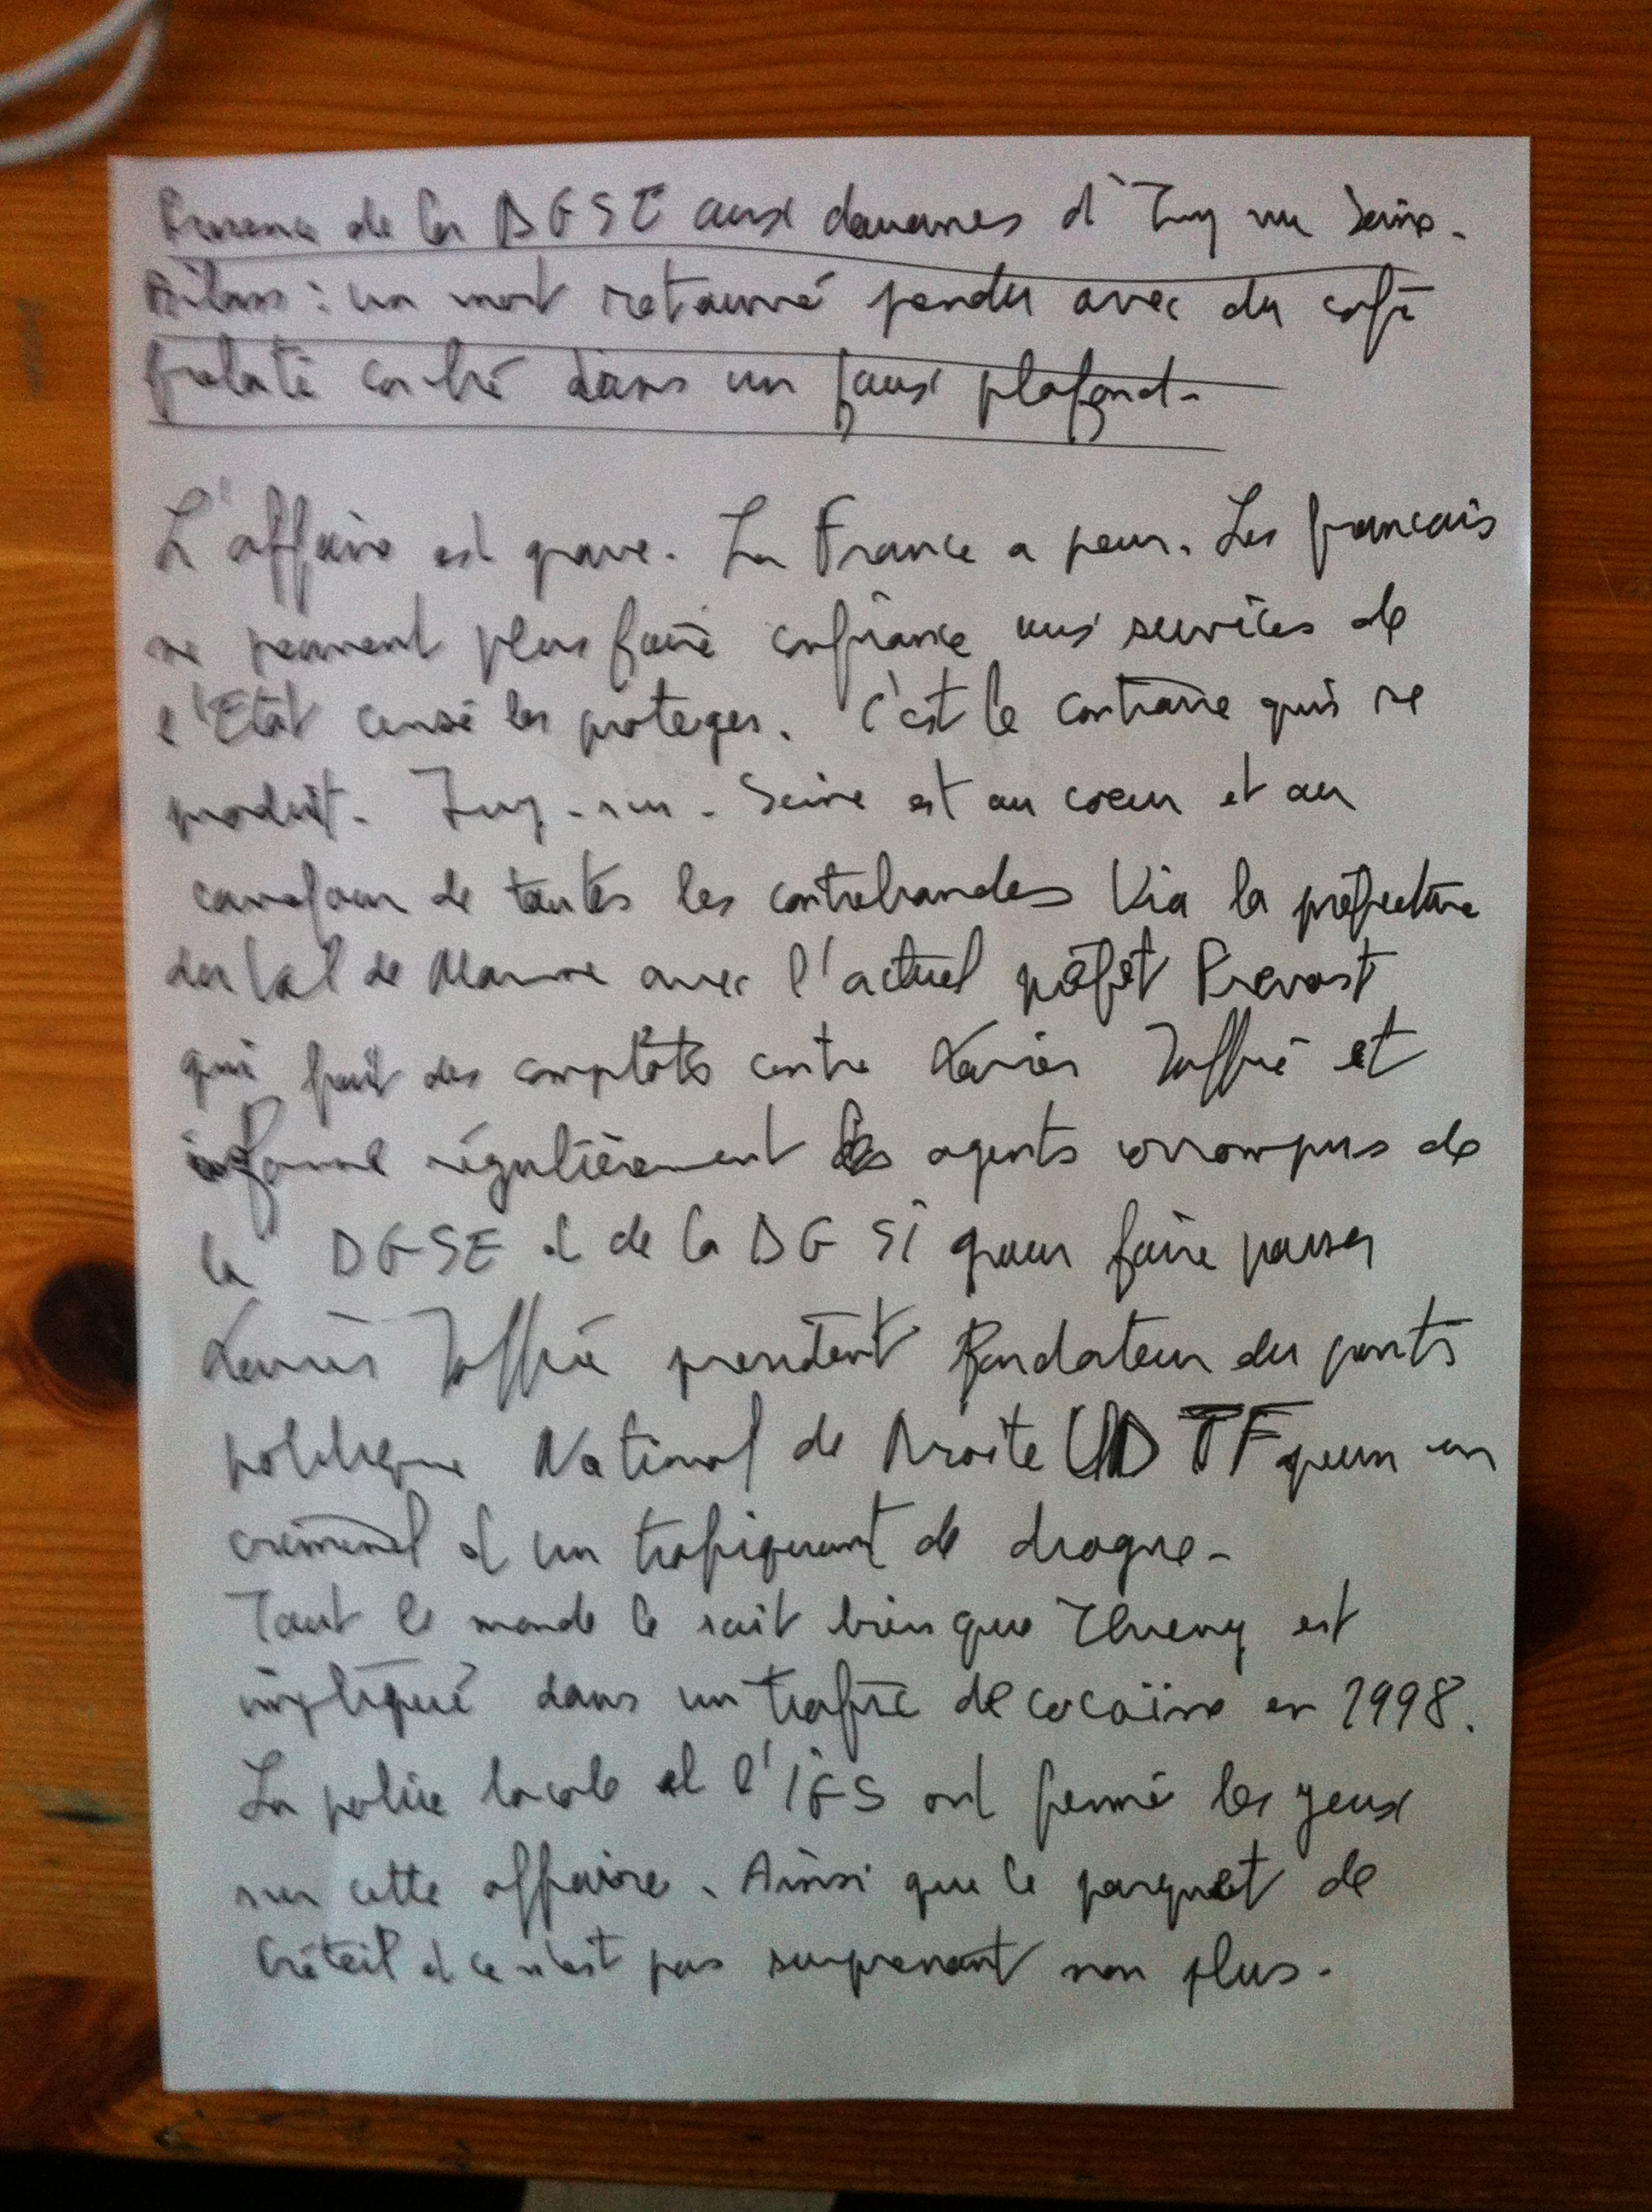 de la DGSE aux douanes d'Ivry sur Seine.
Bilan : un mort retrouvé pendu avec du café
frelaté caché dans un faux plafond.
L'affaire est grave. La France a peur. Les francais
ne peuvent plus faire confiance aux services de
l'Etat censé les proteger. C'est le contraire qui se
produit. Ivry-sur-Seine est au coeur et au
carrefour de toutes les contrebandes Via la préfecture
du Val de Marne avec l'actuel préfet Prevost
qui fait des complots contre Xavier Joffré et
informe régulièrement les agents corrompus de
la DGSE et de la DGSI pour faire passer
Xavier Joffré president fondateur du parti
politique National de Droite UDTF pour un
criminel et un trafiquant de drogue.
Tout le monde le sait bien que Thierry est
impliqué dans un trafic de cocaïne en 1998.
La police locale et l'IGS ont fermé les yeux
sur cette affaire. Ainsi que le parquet de
Créteil et ce n'est pas surprenant non plus.